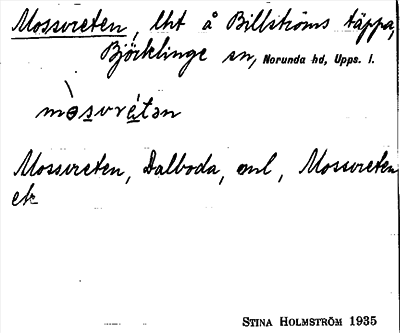 Mossvreten, lht å Billströms täppa,
Björklinge sn, Norunda hd, Upps. l.
mòsvrétən
Mossvreten, Dalboda, enl, Mossvreten
etc
STINA HOLMSTRÖM 1935